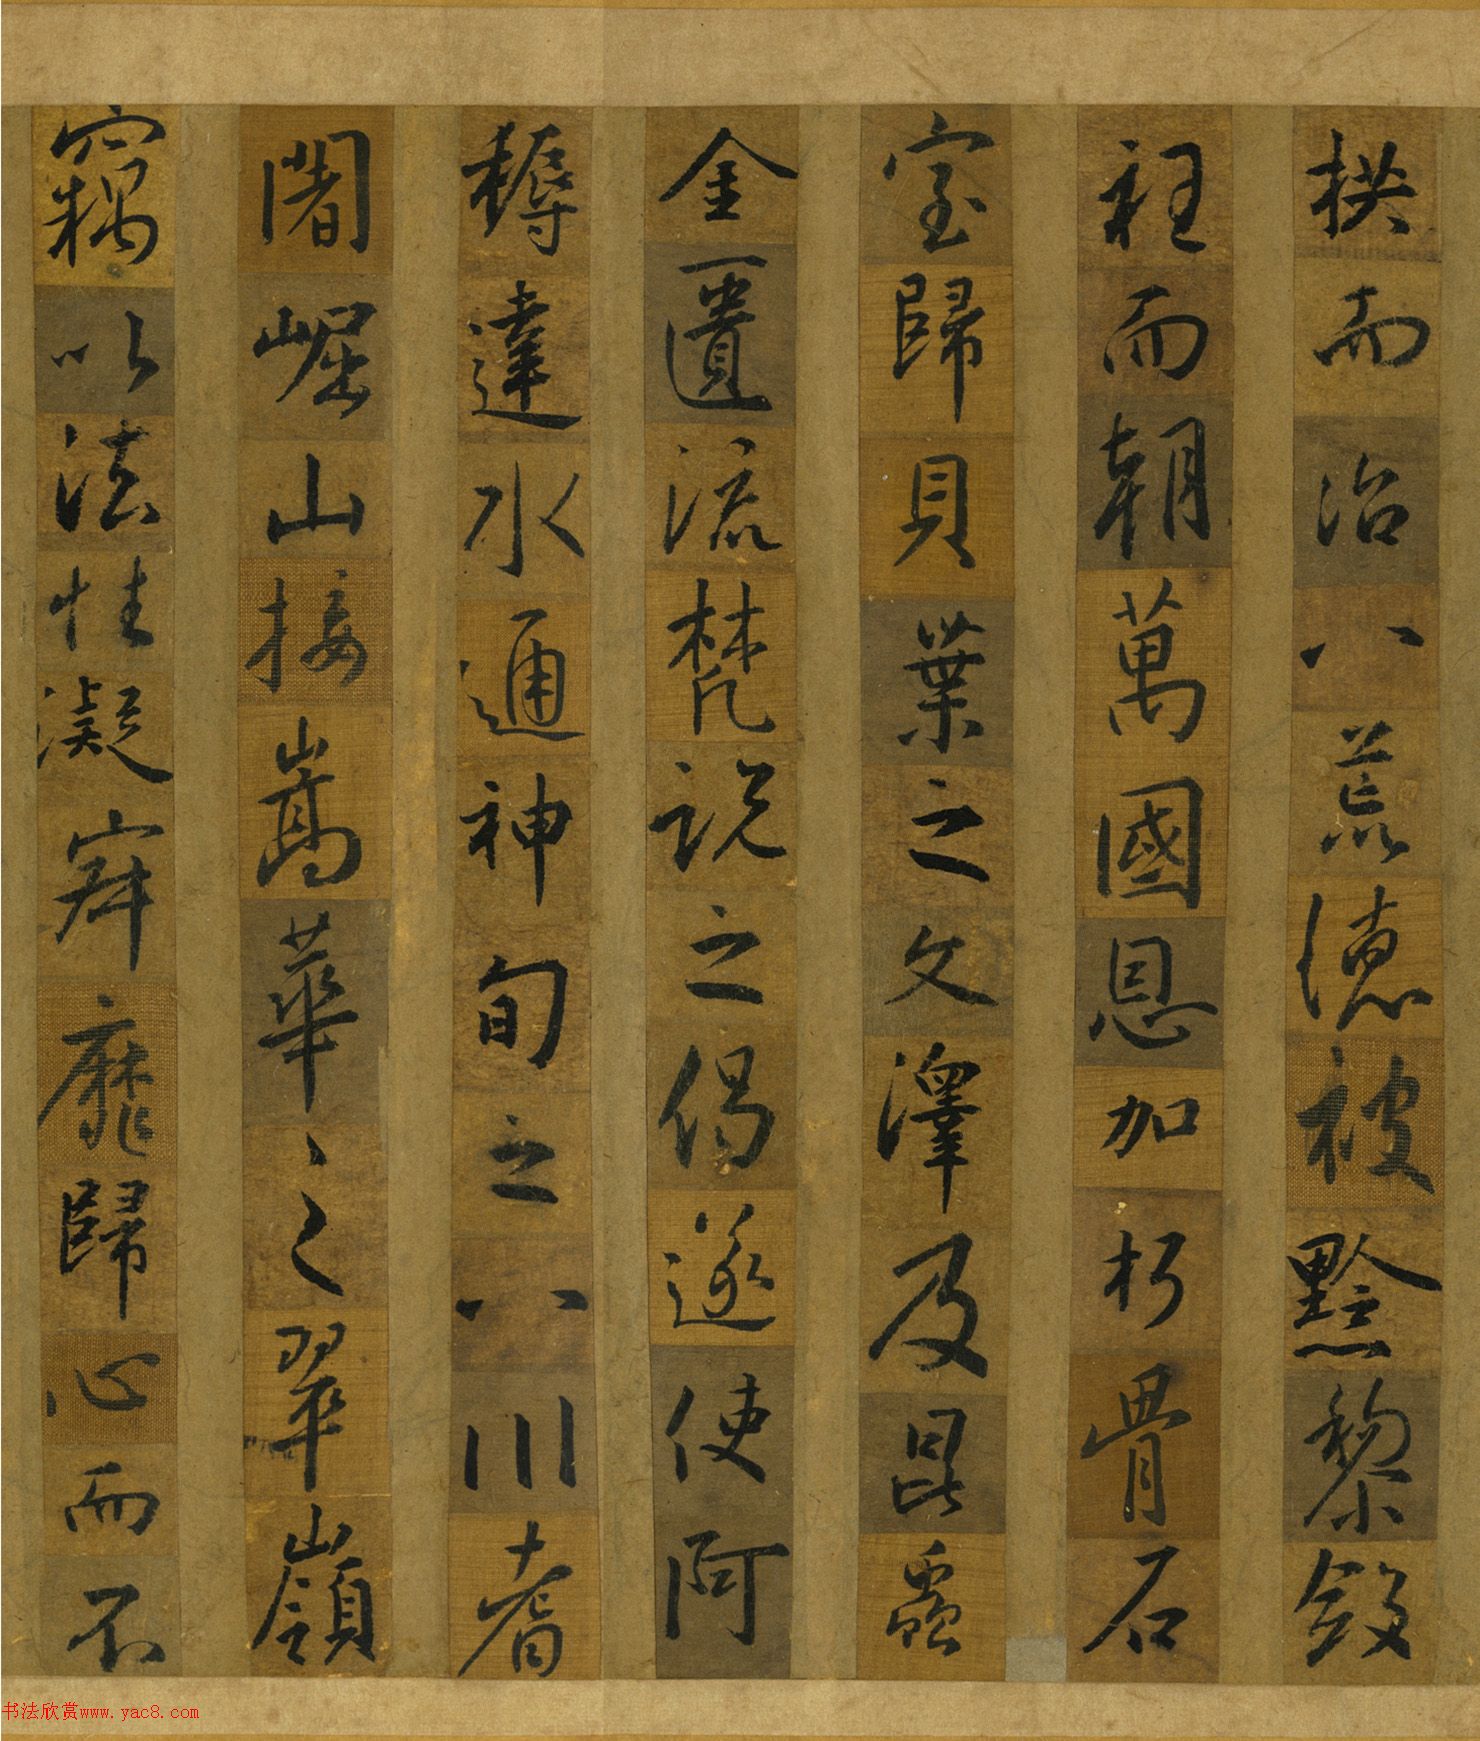 拱而治八荒德被黔黎斂
衽而朝萬國恩加朽骨石
室歸貝葉之文澤及昆蟲
金匱流梵說之偈遂使阿
耨達水通神甸之八川耆
闍崛山接嵩華之翠嶺
竊以法性凝寂靡歸心而不
书法欣赏www.yac8.com